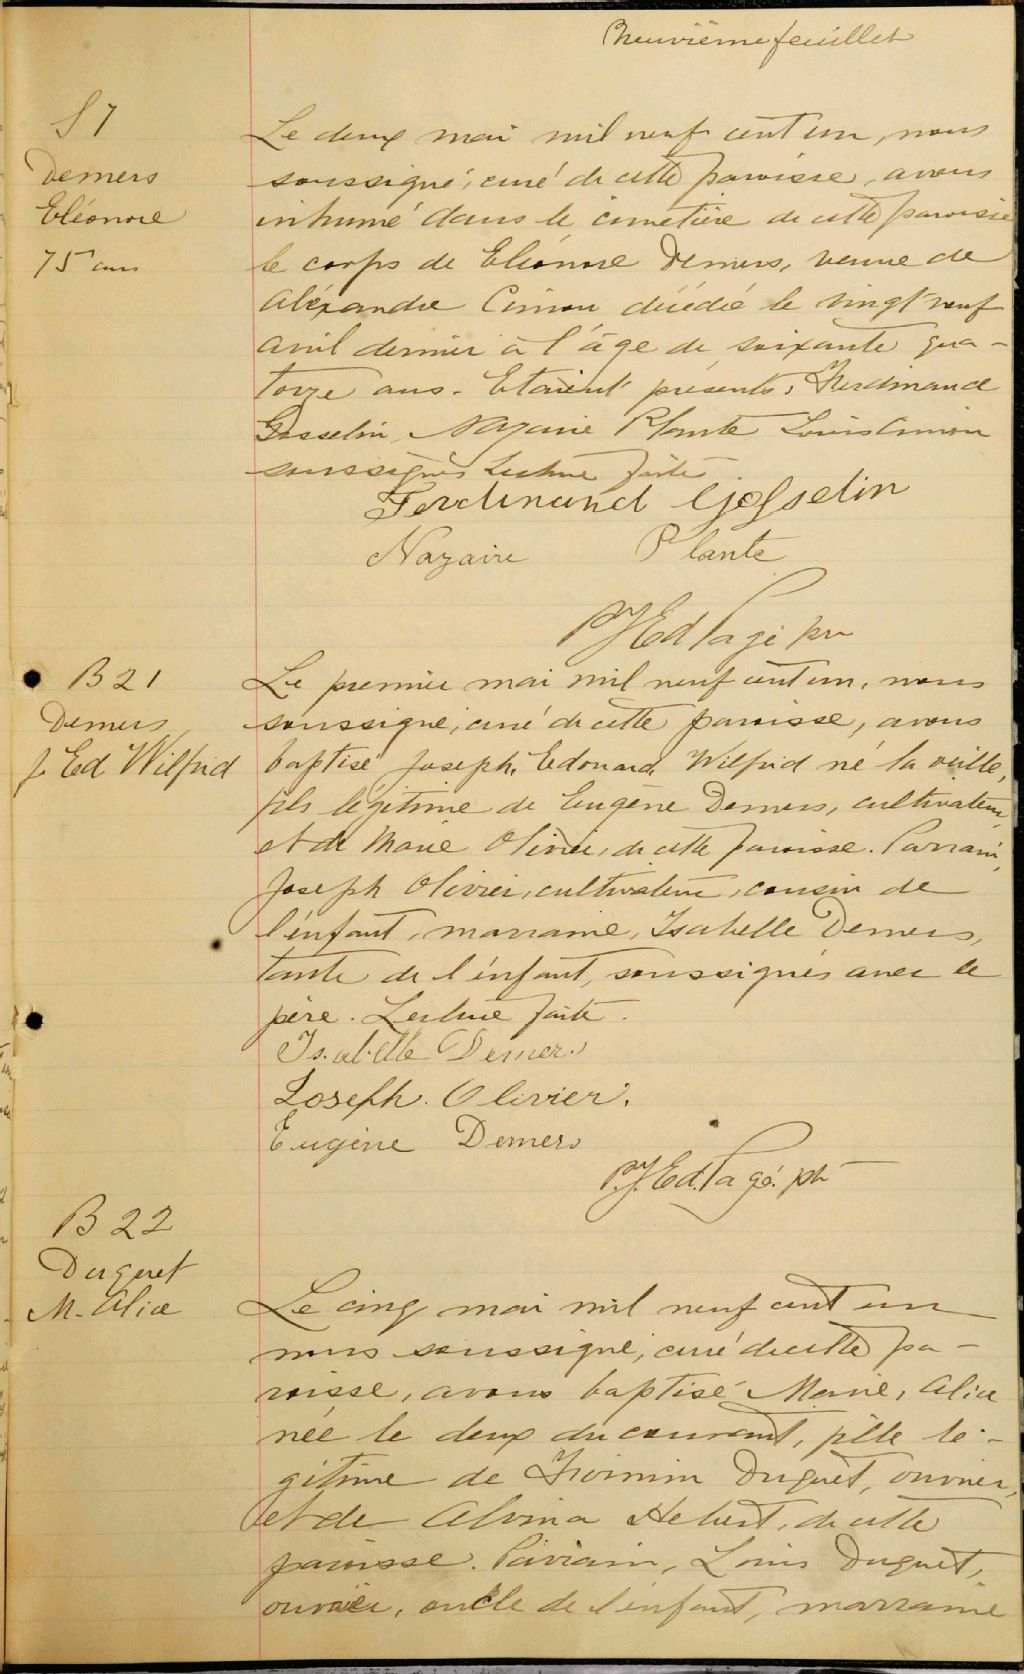 Neuvième feuillet
S 7
Demers
Eléonore
75 ans
Le deux mai mil neuf cent un, nous
soussigné, curé de cette paroisse, avons
inhumé dans le cimetière de cette paroisse
le corps de Eléonore Demers, veuve de
Alexandre Cimon décédée le vingt neuf
avril dernier à l'âge de soixante qua-
torze ans. Etaient présents, Ferdinand
Gosselin, Nazaire Plante Louis Cimon
soussignés Lecture faite
Ferdinand Gosselin
Nazaire Plante
PJEd Pagé ptr
B 21
Demers,
J. Ed Wilfrid
Le premier mai mil neuf cent un, nous
soussigné, curé de cette paroisse, avons
baptisé Joseph, Edouard, Wilfrid né la veille,
fils légitime de Eugène Demers, cultivateur,
et de Marie Olivier, de cette paroisse. Parrain,
Joseph Olivier, cultivateur, cousin de
l'enfant, marraine, Isabelle Demers,
tante de l'enfant, soussignés avec le
père. Lecture faite.
Isabelle Demers
Joseph. Olivier.
Eugène Demers
P.J.Ed. Pagé. ptr
B 22
Duquet
M. Alice
Le cinq mai mil neuf cent un
nous soussigné, curé de cette pa-
roisse, avons baptisé Marie, Alice
née le deux du courant, fille lé-
gitime de Firmin Duquet, ouvrier,
et de Alvina Hebert, de cette
paroisse. Parrain, Louis Duquet,
ouvrier, oncle de l'enfant, marraine